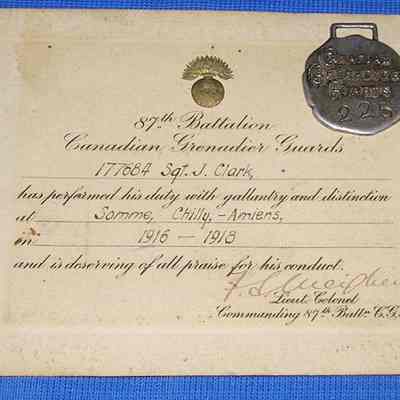 CANADIAN
GRENADIER
GUARDS
225
87th Battalion
Canadian Grenadier Guards
177684 Sgt. J. Clark,
has performed his duty with gallantry and distinction
at Somme, Chilly, - Amiens,
on 1916 — 1918
and is deserving of all praise for his conduct.
Lieut Colonel
Commanding 87th Battn C.G.